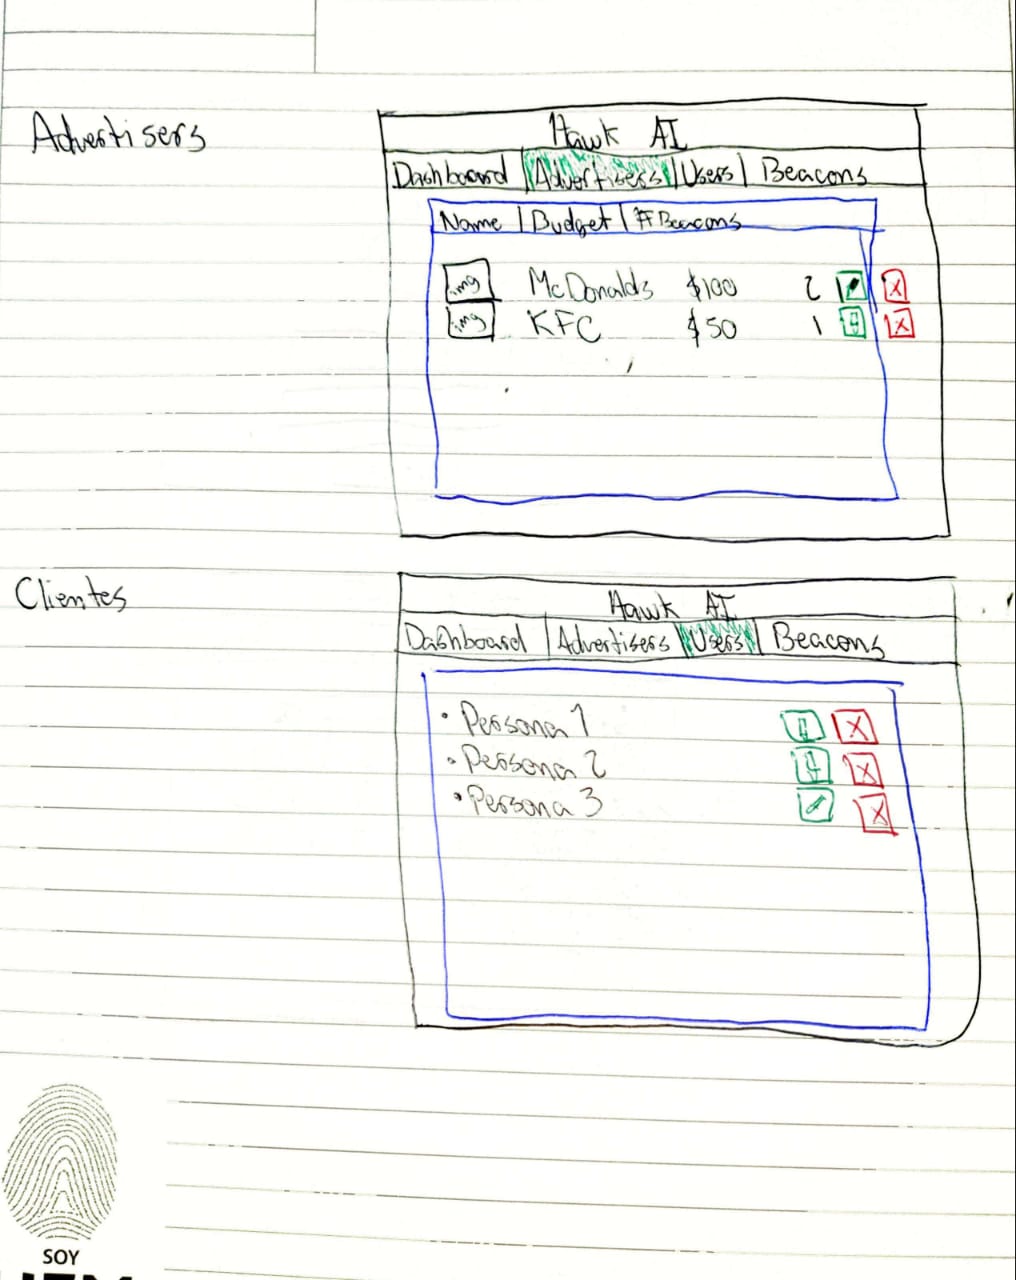 Advertisers
Hawk AI
Dashboard | Advertisers | Users | Beacons
Name | Budget | # Beacons
img McDonalds $100 2 X
img KFC $50 1 X
Clientes
Hawk AI
Dashboard | Advertisers | Users | Beacons
• Persona 1 X
• Persona 2 X
• Persona 3 X
SOY